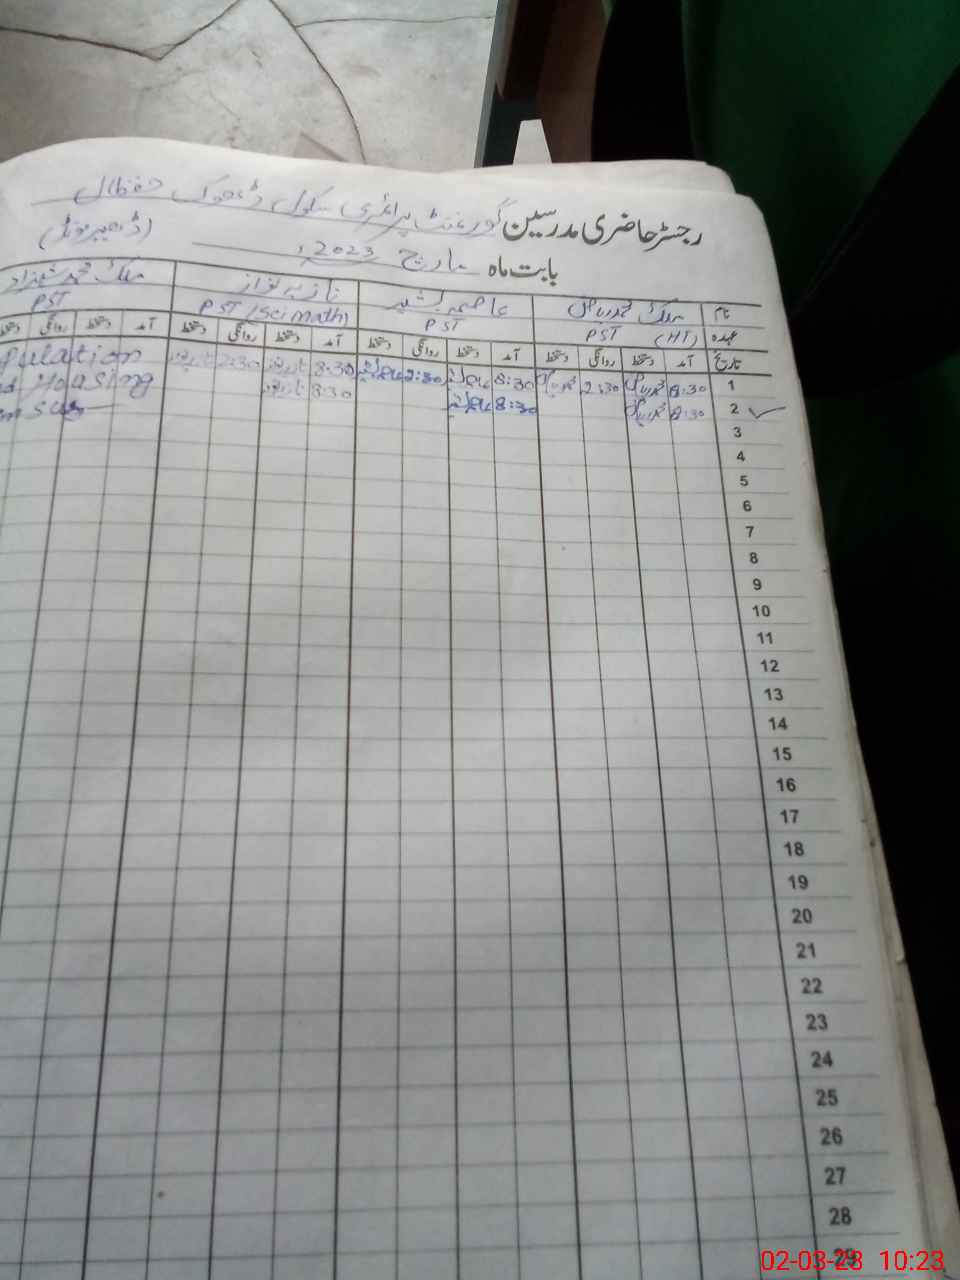 رجسٹر حاضری مدرسین گورنمنٹ پرائمری سکول ڈھوک حفظال
بابت ماہ مارچ 2023ء (ڈھیرمونڈ)
نام عاصمہ بشیر نازیہ نواز ملک محمد شہزاد
عہدہ PST (HT) PST PST (Sci math) PST
تاریخ آمد دستخط روانگی دستخط آمد دستخط روانگی دستخط آمد دستخط روانگی دستخط آمد دستخط روانگی دستخط
1 8:30 2:30 8:30 2:30 8:30 2:30 pulation
2 8:30 8:30 8:30 Housing
3
4
5
6
7
8
9
10
11
12
13
14
15
16
17
18
19
20
21
22
23
24
25
26
27
28
29
02-03-23 10:23